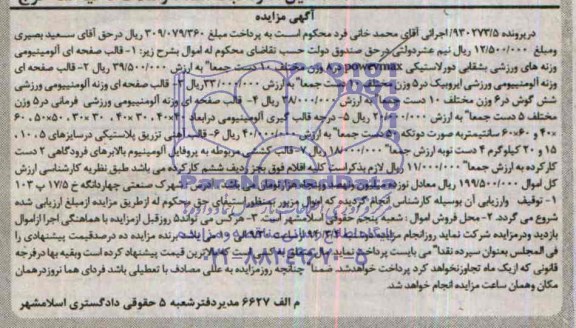 آگهی مزایده
درپرونده ۹۳۰۲۷۳/۵ اجرائی آقای محمد خانی فرد محکوم است به پرداخت مبلغ ۳۰۹/۰۷۹/۳۶۰ ریال درحق آقای سعید بصیری
ومبلغ ۱۲/۵۰۰/۰۰۰ ریال نیم عشردولتی درحق صندوق دولت حسب تقاضای محکوم له اموال بشرح زیر: ۱- قالب صفحه ای آلومینیومی
وزنه های ورزشی بشقابی دورلاستیکی powermax در ۸ وزن مختلف ۱۰ دست جمعا" به ارزش ۳۹/۵۰۰/۰۰۰ ریال ۲- قالب صفحه ای
وزنه آلومنییومی ورزشی ایروبیک در۵ وزن مختلف ۱۰ دست جمعا" به ارزش ۳۳/۰۰۰/۰۰۰ریال ۳- قالب صفحه ای وزنه آلومنییومی ورزشی
شش گوش در۶ وزن مختلف ۱۰ دست جمعا" به ارزش ۳۸/۰۰۰/۰۰۰ ریال ۴- قالب صفحه ای وزنه آلومنییومی ورزشی فرمانی در۵ وزن
مختلف ۵ دست جمعا" به ارزش ۲۰/۰۰۰/۰۰۰ ریال ۵- درجه قالب گیری آلومینیومی درابعاد
۴۰× و ۶۰×۶۰ سانتیمتربه صورت دوتکه دست جمعا" به ارزش ۴۰/۰۰۰/۰۰۰ ریال ۶- قالب آهنی تزریق پلاستیکی درسایزهای ۵، ۱۰،
۱۵ و ۲۰ کیلوگرم ۴ دست نوبه ارزش جمعا" ۱۸/۰۰۰/۰۰۰ ریال ۷- قالب مربوطه به پروفایل آلومینیوم بالابرهای فرودگاهی ۲ دست
کارکرده به ارزش جمعا" ۱۱/۰۰۰/۰۰۰ ریال لازم بذکراست کلیه اقلام فوق بجز ردیف ششم کارکرده می باشد طبق نظریه کارشناسی ارزش
کل اموال ۱۹۹/۵۰۰/۰۰۰ ریال معادل شهرک صنعتی چهاردانگه خ ۱۷/۵ پ ۱۰۳
۱- توقیف وارزیابی آن بوسیله کارشناس انجام گردیده که اموال مزبور بمنظوراستیفای حق محکوم له ازطریق مزایده ازمبلغ ارزیابی شده
شروع می گردد. ۲- محل فروش اموال: شعبه پنجم حقوقی اسلامشهر است ۳- هرکس می تواند ۵ روزقبل ازمزایده با هماهنگی اجرا ازاموال
بازدید ودرمزایده شرکت نماید روزانجام مزایده برنده مزایده ده درصدقیمت پیشنهادی را
فی المجلس بعنوان سپرده نقدا" می بایست پرداخت نماید قیمت پیشنهاد کرده است وبقیه بهادرفرجه
قانونی که ازیک ماه تجاوزنخواهد کرد پرداخت خواهدشد. ضمنا" چنانچه روزمزایده به عللی مصادف با تعطیلی باشد فردای همان روزدرهمان
مکان وهمان ساعت مزایده انجام خواهد شد.
م الف ۶۶۲۷ مدیردفترشعبه ۵ حقوقی دادگستری اسلامشهر
۰۲۱-۸۸۳۴۹۶۷۰-۵